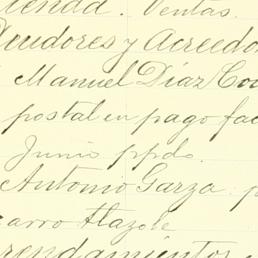 Hacienda. Ventas.
Deudores y Acreedo
Manuel Díaz Co
postal en pago fac
Junio ppdo.
Antonio Garza p
carro tlazole
rrendamientos